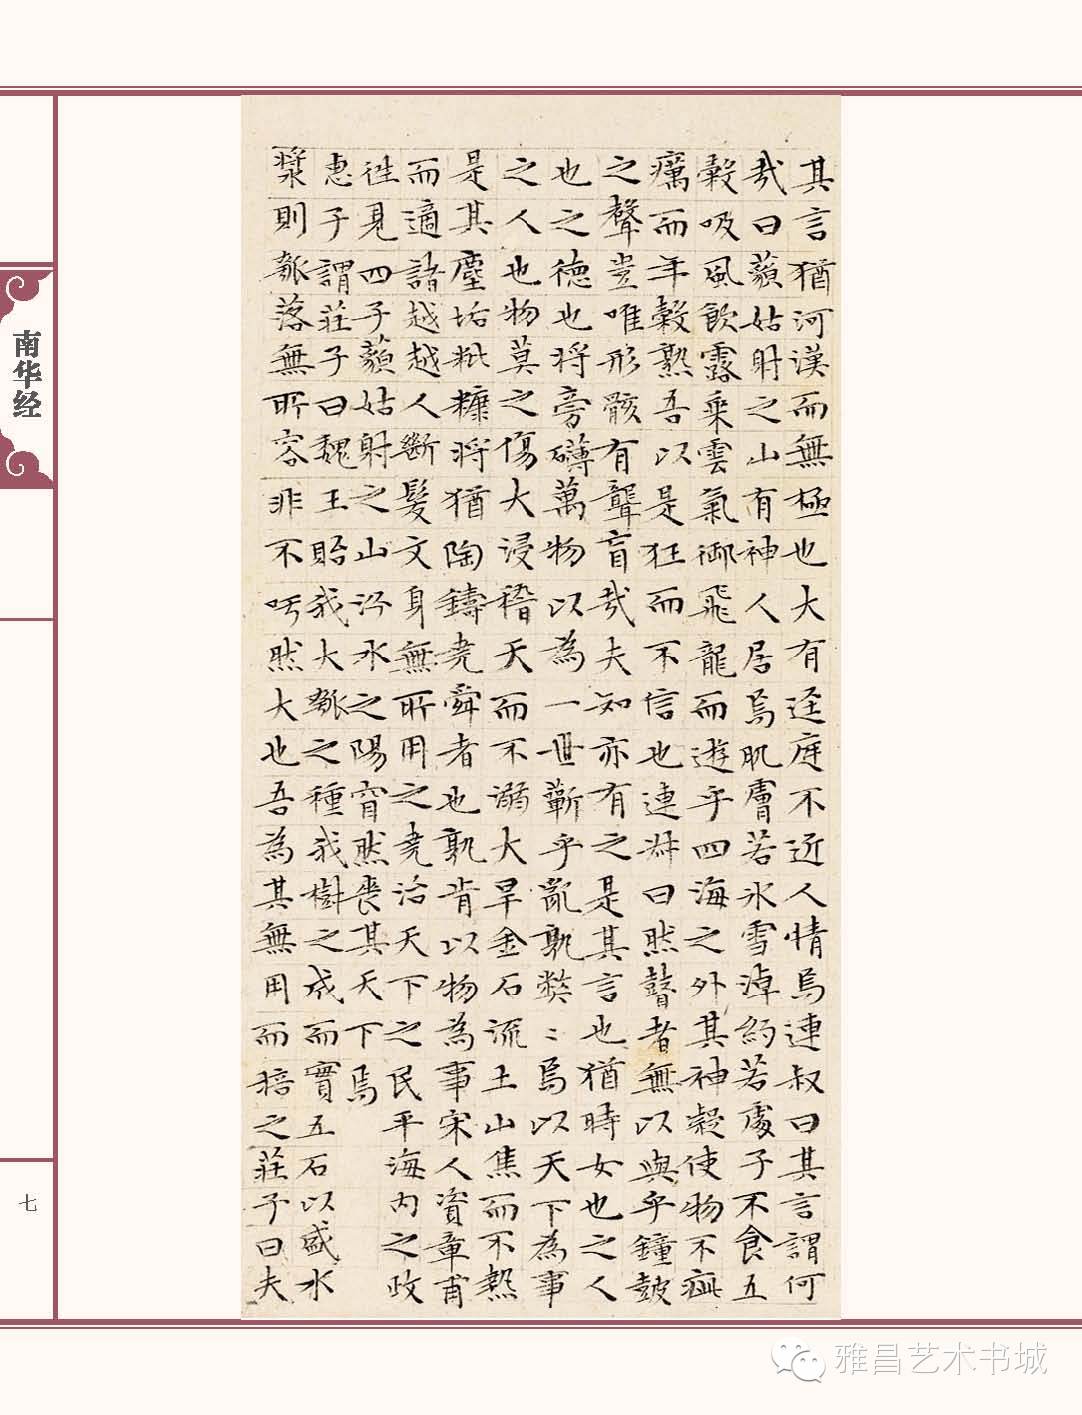 其言猶河漢而無極也大有迳庭不近人情焉連叔曰其言謂何
哉曰藐姑射之山有神人居焉肌膚若氷雪淖約若處子不食五
穀吸風飲露乘雲氣御飛龍而遊乎四海之外其神凝使物不疵
癘而年穀熟吾以是狂而不信也連叔曰然瞽者無以與乎鐘鼓
之聲豈唯形骸有聾盲哉夫知亦有之是其言也猶時女也之人
也之德也將旁礴萬物以為一世蘄乎亂孰弊〻焉以天下為事
之人也物莫之傷大浸稽天而不溺大旱金石流土山焦而不熱
是其塵垢粃糠將猶陶鑄堯舜者也孰肯以物為事宋人資章甫
而適諸越越人斷髮文身無所用之堯治天下之民平海内之政
往見四子藐姑射之山汾水之陽窅然喪其天下焉
惠子謂莊子曰魏王貽我大瓠之種我樹之成而實五石以盛水
漿則瓠落無所容非不呺然大也吾為其無用而掊之莊子曰夫
南华经
七
雅昌艺术书城